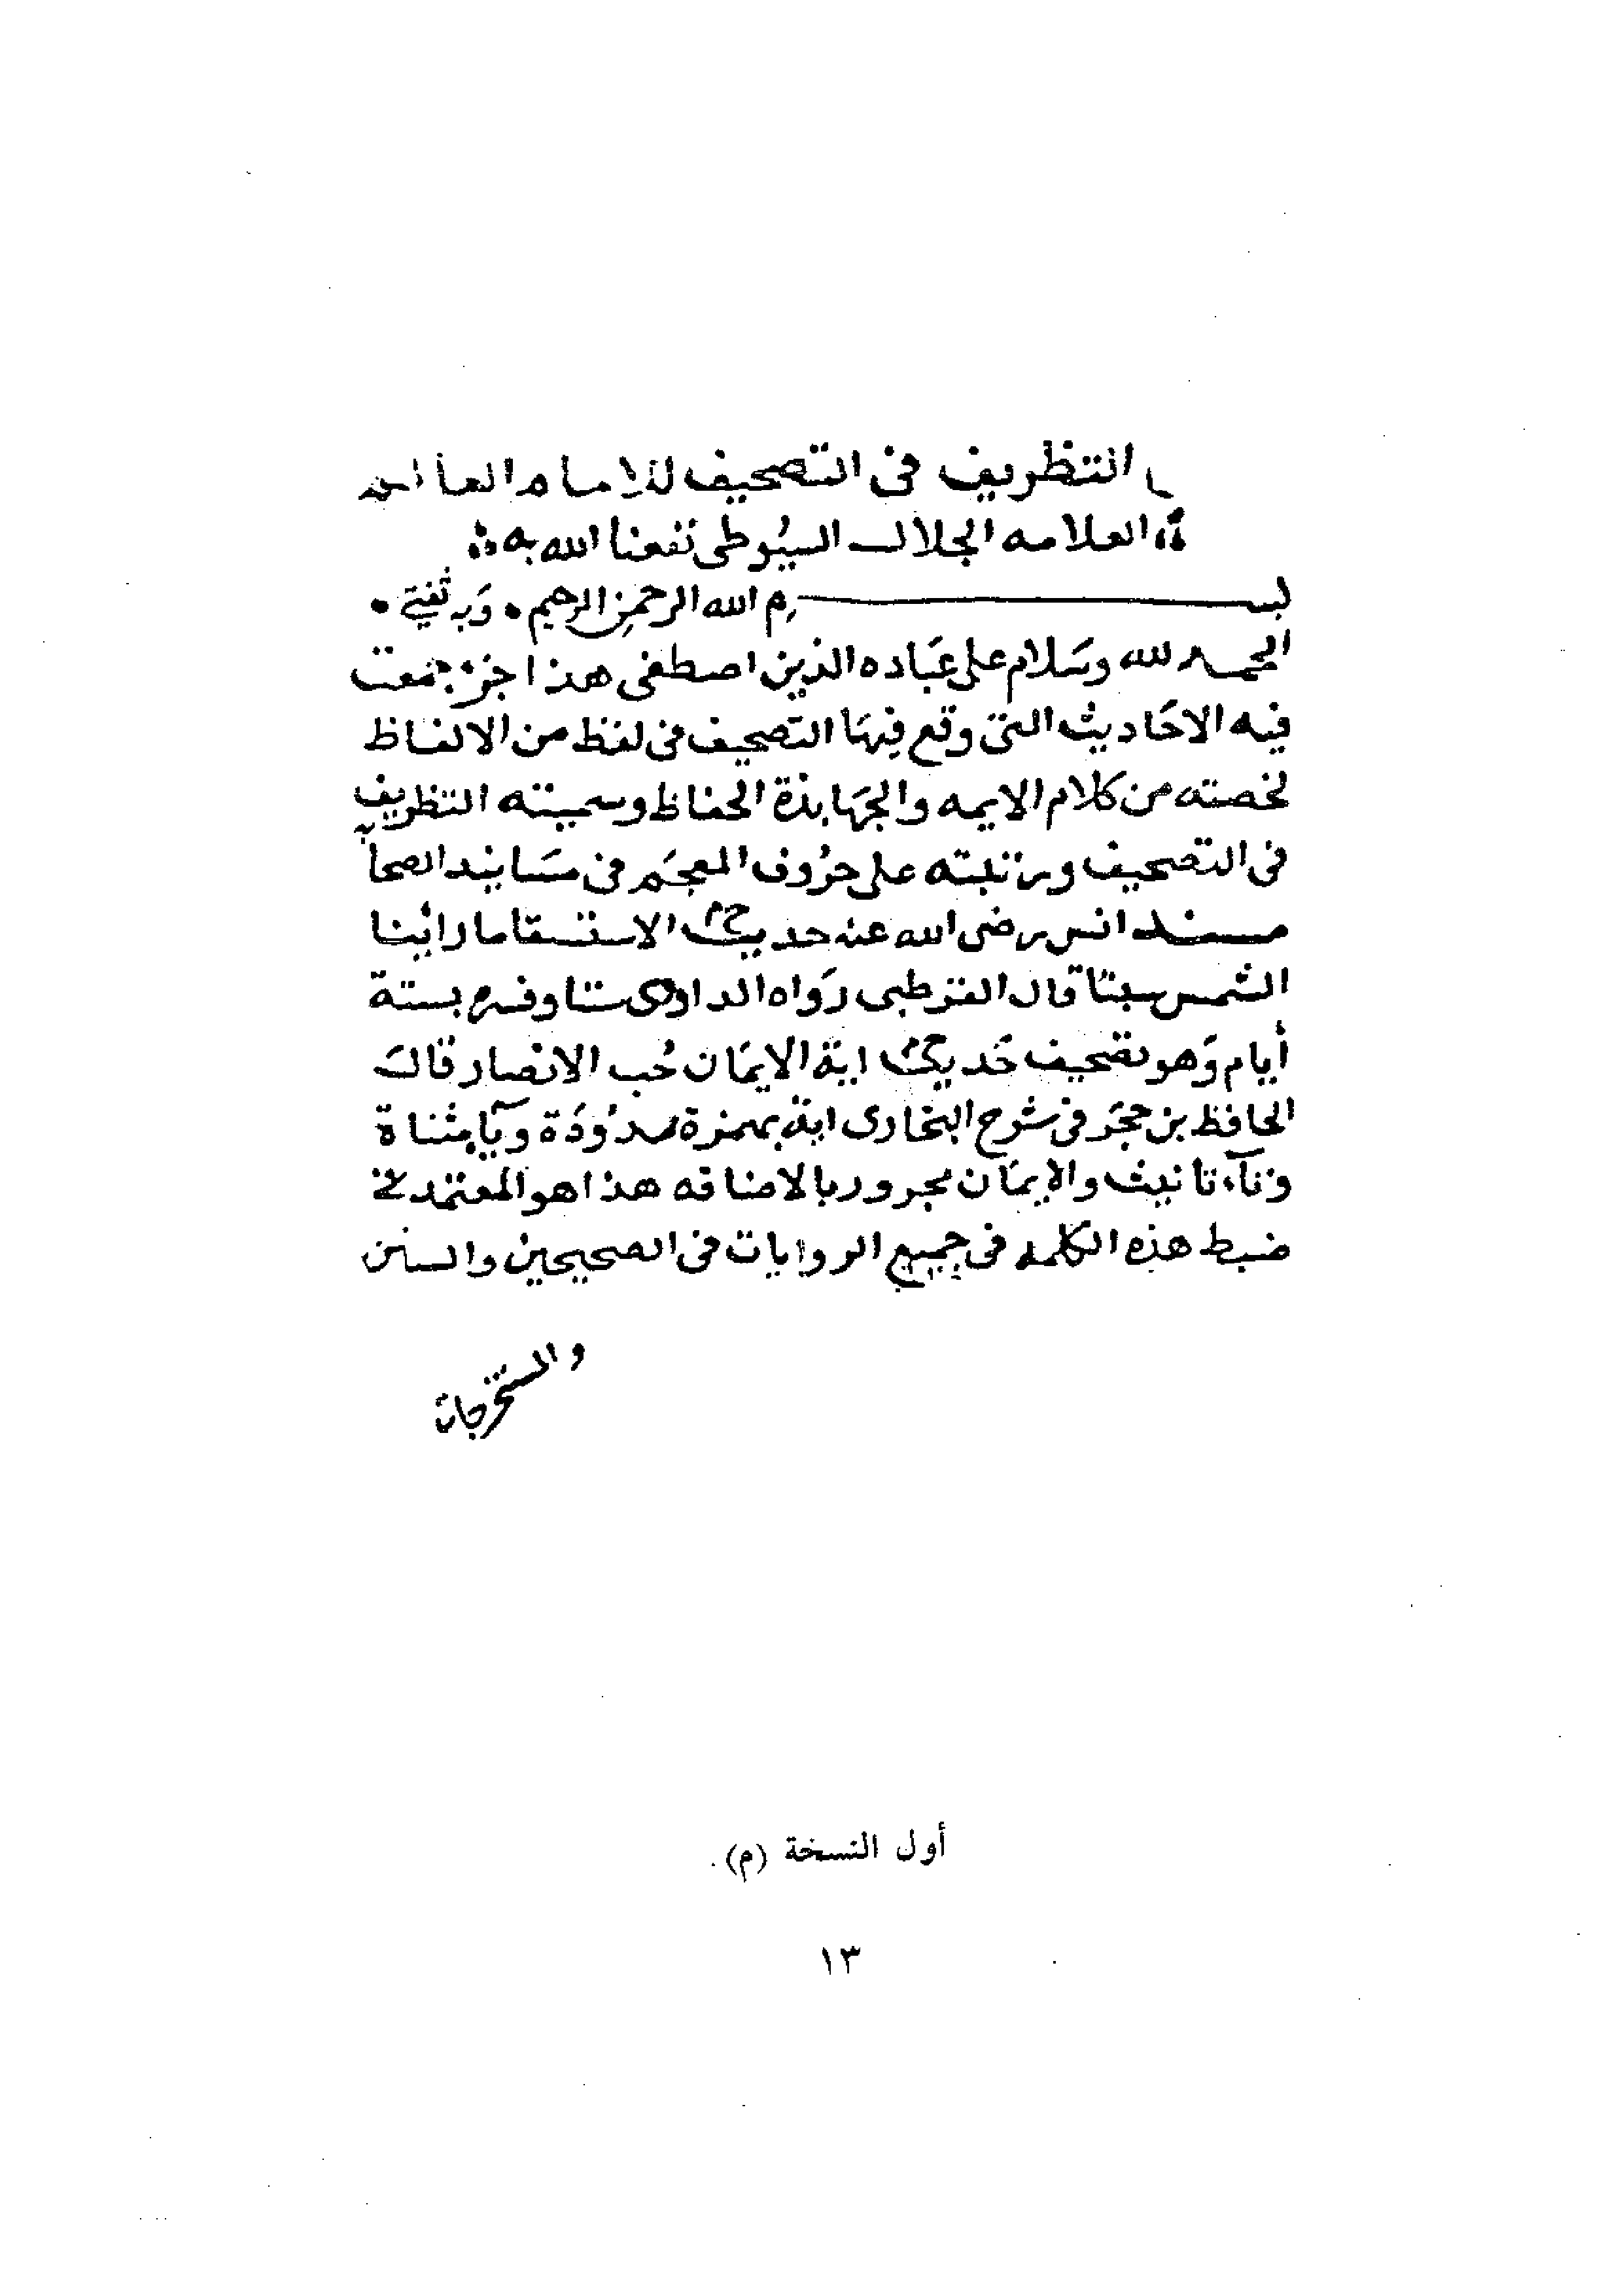 التظريف فى التصحيف للامام العالم
العلامه الجلال السيُوطى نفعنا الله به
بسم الله الرحمن الرحيم • وَبه ثقتي •
الحمد لله وسَلام على عبَاده الذين اصطفى هذا جزء جمعت
فيه الاحَاديث التى وقع فيهَا التصحيف فى لفظ من الالفاظ
لخصته من كلام الايمه والجهَابذة الحفاظ وسميته التظريف
فى التصحيف ورتبته على حرُوف المعجَم فى مسَانيد الصحابة
مسند انس رضى الله عنه حديث الاستسقا ما رائينا
الشمس سبتًا قال القرطبى روَاه الداودى ستا وفسره بستة
أيام وَهو تصحيف حَديث اية الايمَان حُب الانصار قال
الحافظ بن حجَر فى شرح البخارى اية بهمزة ممدُودَة ويَآء مثناة
وتآء تانيث والإيمَان مجرور بالاضافه هذا هو المعتمد فى
ضبط هذه الكلمه فى جميع الروايات فى الصحيحين والسنن
والمستخرجات
أول النسخة (م).
١٣